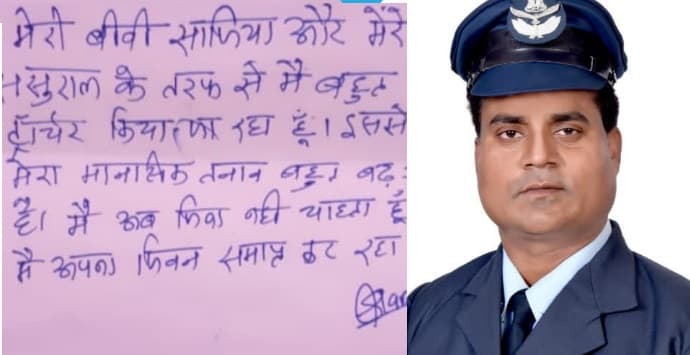 मेरी बीवी साफिया और मेरे
ससुराल के तरफ से मै बहुत
ट्रॉर्चर किया जा रहा हूँ। इससे
मेरा मानसिक तनाव बहुत बढ़
है। मै अब जिना नही चाहता हूँ
मै अपना जिवन समाप्त कर रहा